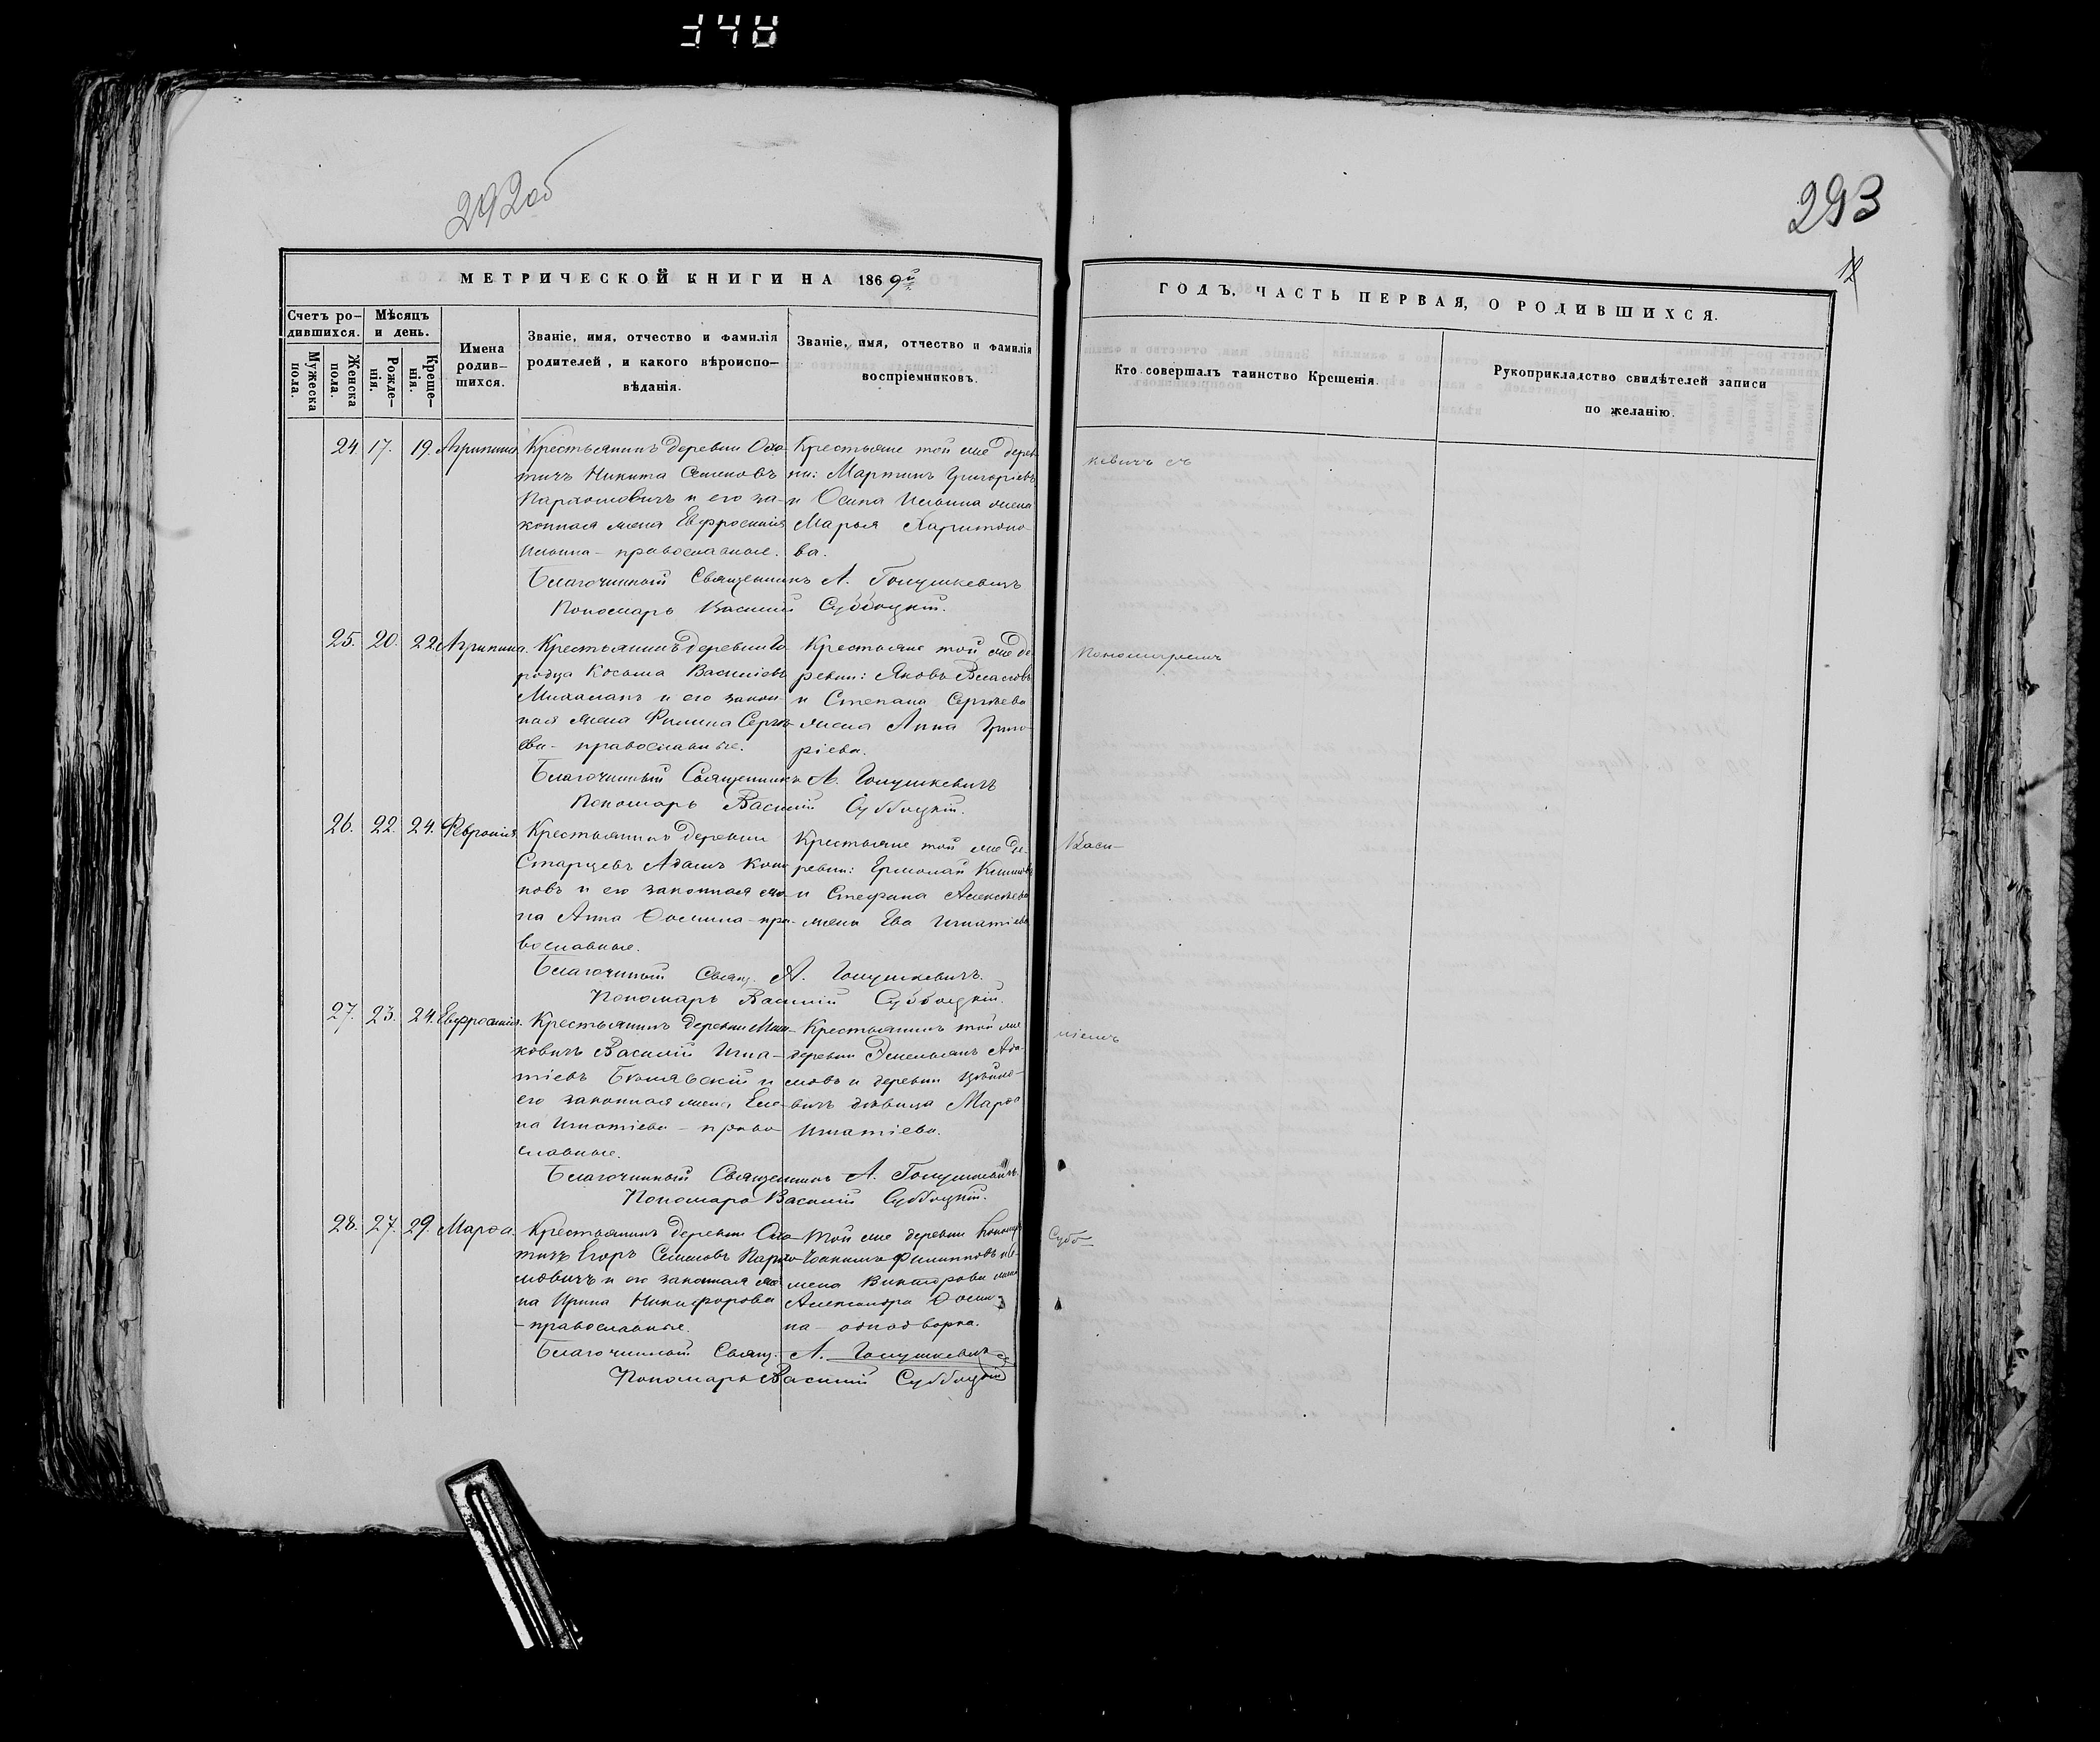 348
292об
293
12
МЕТРИЧЕСКОЙ КНИГИ НА 1869й
ГОДЪ, ЧАСТЬ ПЕРВАЯ, О РОДИВШИХСЯ.
Счетъ ро-
дившихся.
Мужеска пола.
Женска пола.
Мѣсяцъ
и день.
Рожде-
нія.
Креще-
нія.
Имена
родив-
шихся.
Званіе, имя, отчество и фамилія
родителей, и какого вѣроиспо-
вѣданія.
Званіе, имя, отчество и фамилія
воспріемниковъ.
Кто совершалъ таинство Крещенія.
Рукоприкладство свидѣтелей записи
по желанію.
24 17. 19. Агрипина
Крестьянинъ деревни
тичъ Никита Семеновъ
Пархомовичъ и его за-
конная жена Евфросинія
Ильина - православные.
Крестьяне той же дерев
ни: Мартинъ Григорьевъ
и Осипа Ильина жена
Марья Харитоно-
ва.
Благочинный Священникъ А. Голушкевичъ
Пономарь Василій Субоцкій.
кевичъ съ
25. 20. 22. Агрипина.
Крестьянинъ деревни Го-
родца Косьма Васильевъ
и его закон-
ная жена Сергѣ-
ева - православные.
Крестьяне той же де
ревни: Яковъ Власовъ
и Степана Сергѣева
жена Анна Григо-
ріева.
Благочинный Священникъ А. Голушкевичъ
Пономарь Василій Субоцкій.
пономаремъ
26. 22. 24. Февронія.
Крестьянинъ деревни
Старцевъ Адамъ Коно
новъ и его законная же-
на Анна Ѳомина - пра-
вославные.
Крестьяне той же де-
ревни: Ермолай
и Стефана Алексѣева
жена Ева Игнатіева
Благочинный Свящ. А. Голушкевичъ.
Пономарь Василій Субоцкій.
Васи-
27. 23. 24. Евфросинія.
Крестьянинъ деревни
ковичъ Василій Игна-
тіевъ и
его законная жена Еле-
на Игнатіева - право
славные.
Крестьянинъ той же
деревни Емельянъ Ада-
мовъ и деревни
вичъ дѣвица Марѳа
Игнатіева.
Благочинный Священникъ А. Голушкевичъ.
Пономарь Василій Субоцкій.
ліемъ
28. 27. 29. Марѳа.
Крестьянинъ деревни
тичъ Егоръ Семеновъ Пархо-
мовичъ и его законная же-
на Ирина Никифорова
- православные.
той же деревни
Филипповъ и
Викторова жена
Александра Ѳоми-
на - однодворка.
Благочинный Свящ. А. Голушкевичъ
Пономарь Василій Субоцкій
Субо-